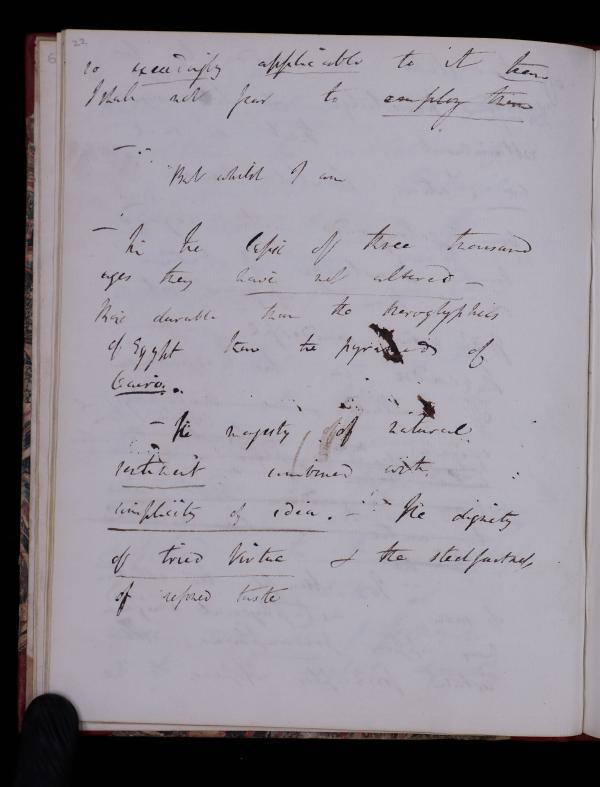 22
so exceedingly applicable to it then
I shall not fear to employ them
But whilst I am
— In the lapse of three thousand
ages they have not altered —
More durable than the hieroglyphics
of Egypt than the pyramids of
Cairo.
— The majesty of natural
sentiment combined with
simplicity of idea. — The dignity
of tried Virtue & the steadfastness
of refined taste